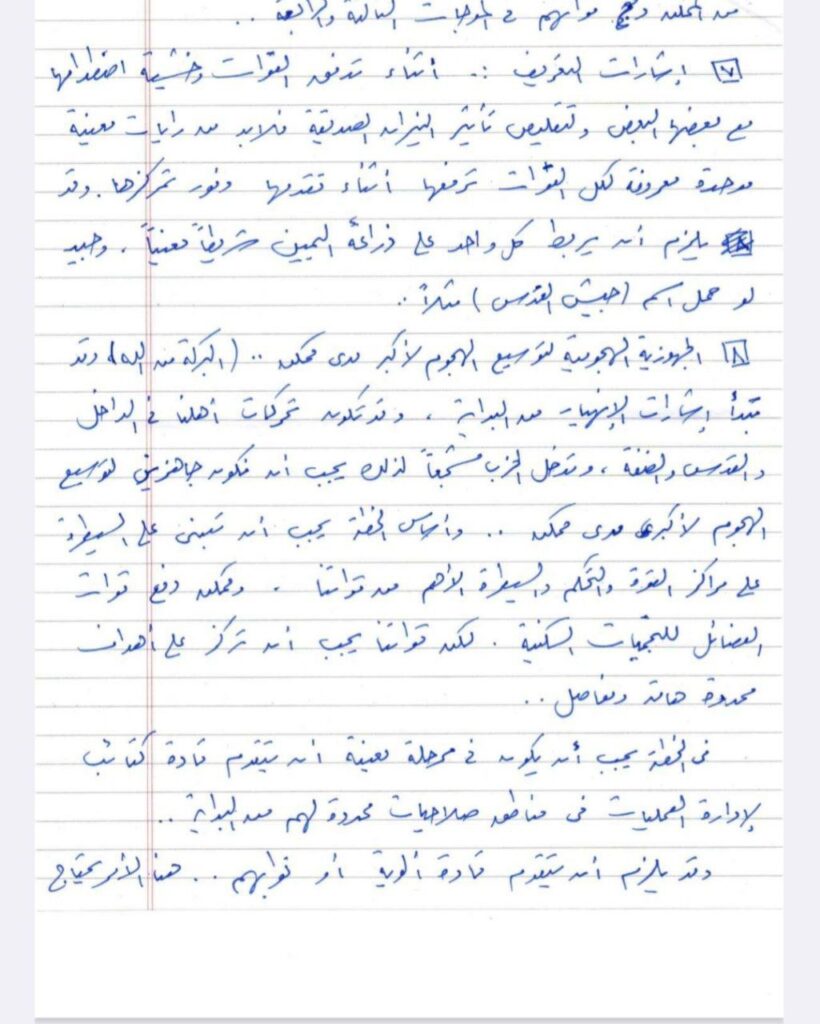 من الممكن دفع نوابهم في الموجات الثالثة والرابعة ..
[٧] إشارات التعريف :. أثناء تدفق القوات وخشية اصطدامها
مع بعضها البعض ولتقليص تأثير النيران الصديقة فلابد من رايات معينة
موحدة معروفة لكل القوات ترفعها أثناء تقدمها وفور تمركزها. وقد
يلزم أن يربط كل واحد على ذراعه اليمين شريطاً معيناً ، وحبيد
لو حمل اسم (جيش القدس) مثلاً..
[٨] الجهوزية الهجومية لتوسيع الهجوم لأكبر مدى ممكن .. (البركة من الله) وقد
تبدأ إشارات الإنهيار من البداية ، وقد تكون تحركات أهلنا في الداخل
والقدس والضفة ، وتدخل الحزب مشجعاً لذلك يجب أن نكون جاهزين لتوسيع
الهجوم لأكبر مدى ممكن .. وأساس الخطة يجب أن تبنى على السيطرة
على مراكز القوة والتحكم والسيطرة الأهم من قواتنا . وممكن دفع قوات
الفصائل للتجمعات السكنية . لكن قواتنا يجب أن تركز على أهداف
محددة هامة ومفاصل ..
في الخطة يجب أن يكون في مرحلة معينة أن يتقدم قادة كتائب
لإدارة العمليات في مناطق صلاحيات محددة لهم من البداية ..
وقد يلزم أن يتقدم قادة ألوية أو نوابهم .. هذا الأمر يحتاج